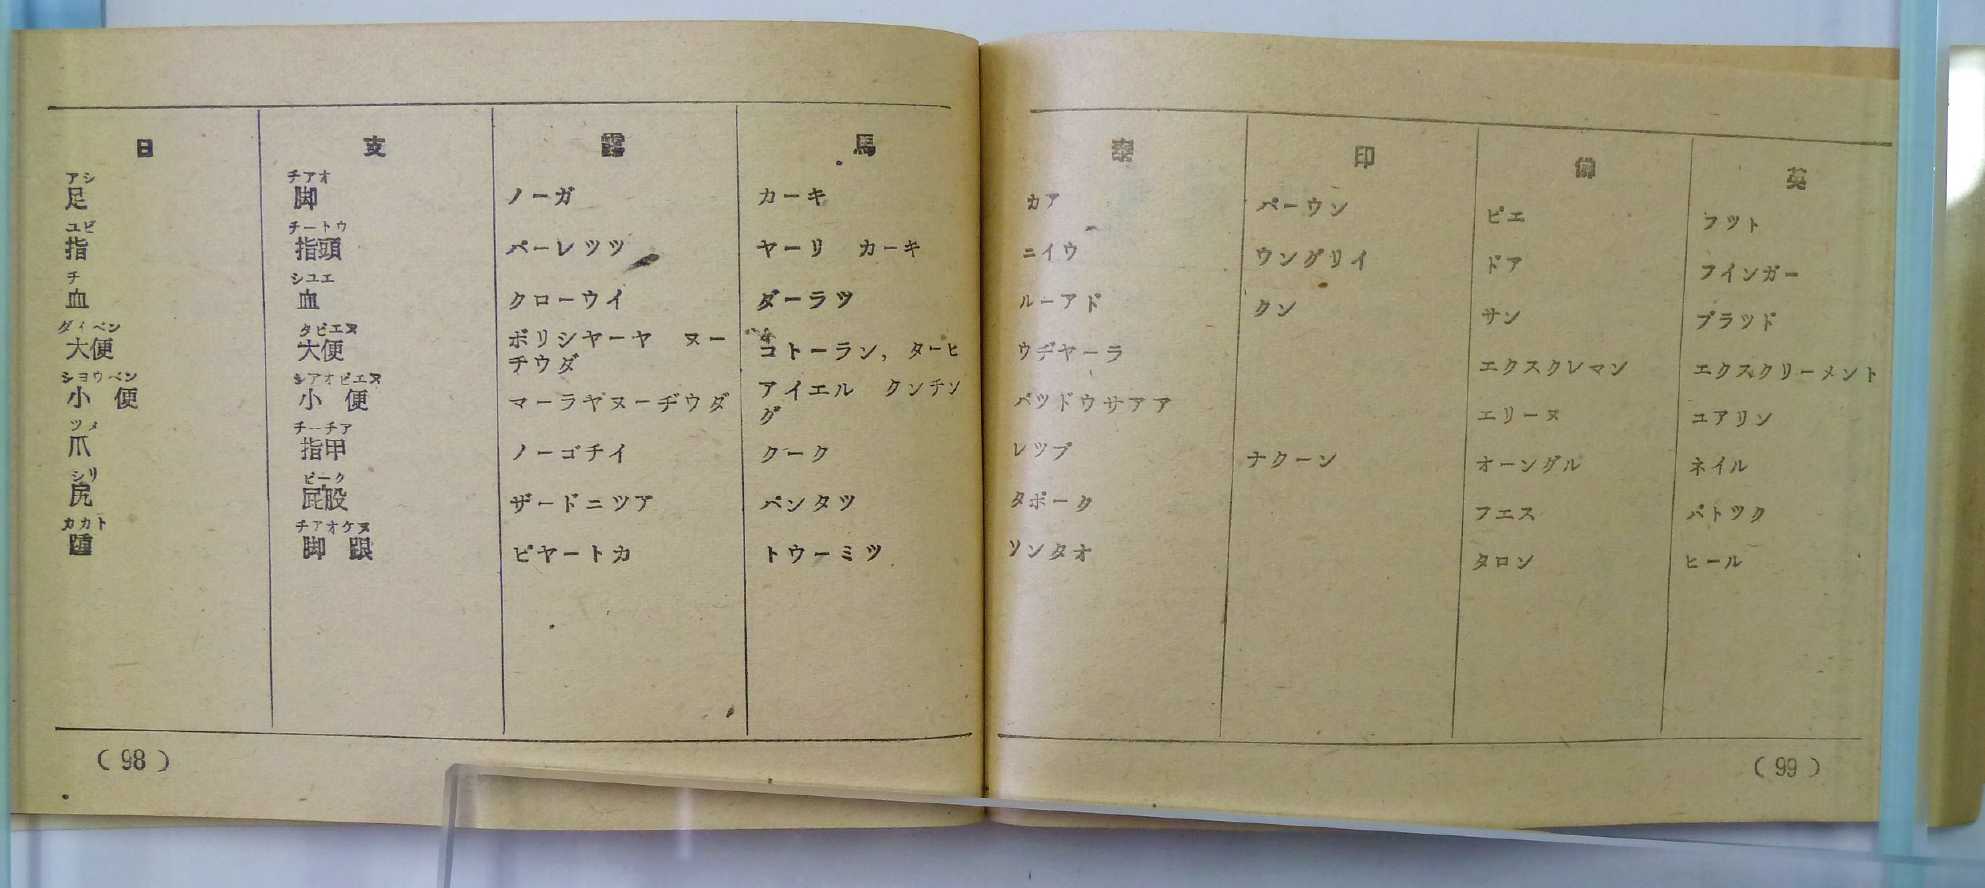 日 支 露 馬
アシ チアオ
足 脚 ノーガ カーキ
ユビ チートウ
指 指頭 パーレツツ ヤーリ カーキ
チ シユエ
血 血 クローウイ ダーラツ
ダイベン タビエヌ
大便 大便 ボリシヤーヤ ヌー コトーラン，ターヒ
チウダ
シヨウベン シアオビエヌ アイエル クンチン
小便 小便 マーラヤヌーヂウダ グ
ツメ チーチア
爪 指甲 ノーゴチイ クーク
シリ ピーク
尻 屁股 ザードニツア パンタツ
カカト チアオケヌ
踵 脚跟 ピヤートカ トウーミツ
(98)
泰 印 佛 英
カア パーウン ピエ フツト
ニイウ ウングリイ ドア フインガー
ルーアド クン サン ブラツド
ウデヤーラ エクスクレマン エクスクリーメント
パツドウサアア エリーヌ ユアリン
レツブ ナクーン オーングル ネイル
タポーク フエス バトツク
ソンタオ タロン ヒール
(99)